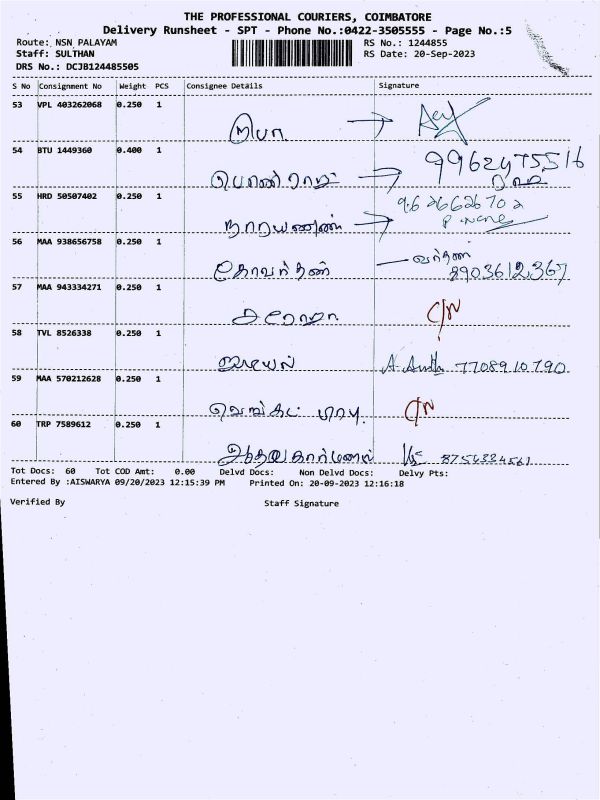 THE PROFESSIONAL COURIERS, COIMBATORE
Delivery Runsheet - SPT - Phone No.:0422-3505555 - Page No.:5
Route: NSN PALAYAM RS No.: 1244855
Staff: SULTHAN RS Date: 20-Sep-2023
DRS No.: DCJB124485505
S No Consignment No Weight PCS Consignee Details Signature
53 VPL 403262068 0.250 1
54 BTU 1449360 0.400 1
பொண்ராஜ் 9962475516
55 HRD 50507402 0.250 1
நாராயணன் 9626626702
56 MAA 938656758 0.250 1
கோவர்தன் 8903612367
57 MAA 943334271 0.250 1
சரோஜா C/N
58 TVL 8526338 0.250 1
7708910790
59 MAA 570212628 0.250 1
வெங்கட் பிரபு. C/N
60 TRP 7589612 0.250 1
8754334561
Tot Docs: 60 Tot COD Amt: 0.00 Delvd Docs: Non Delvd Docs: Delvy Pts:
Entered By :AISWARYA 09/20/2023 12:15:39 PM Printed On: 20-09-2023 12:16:18
Verified By Staff Signature